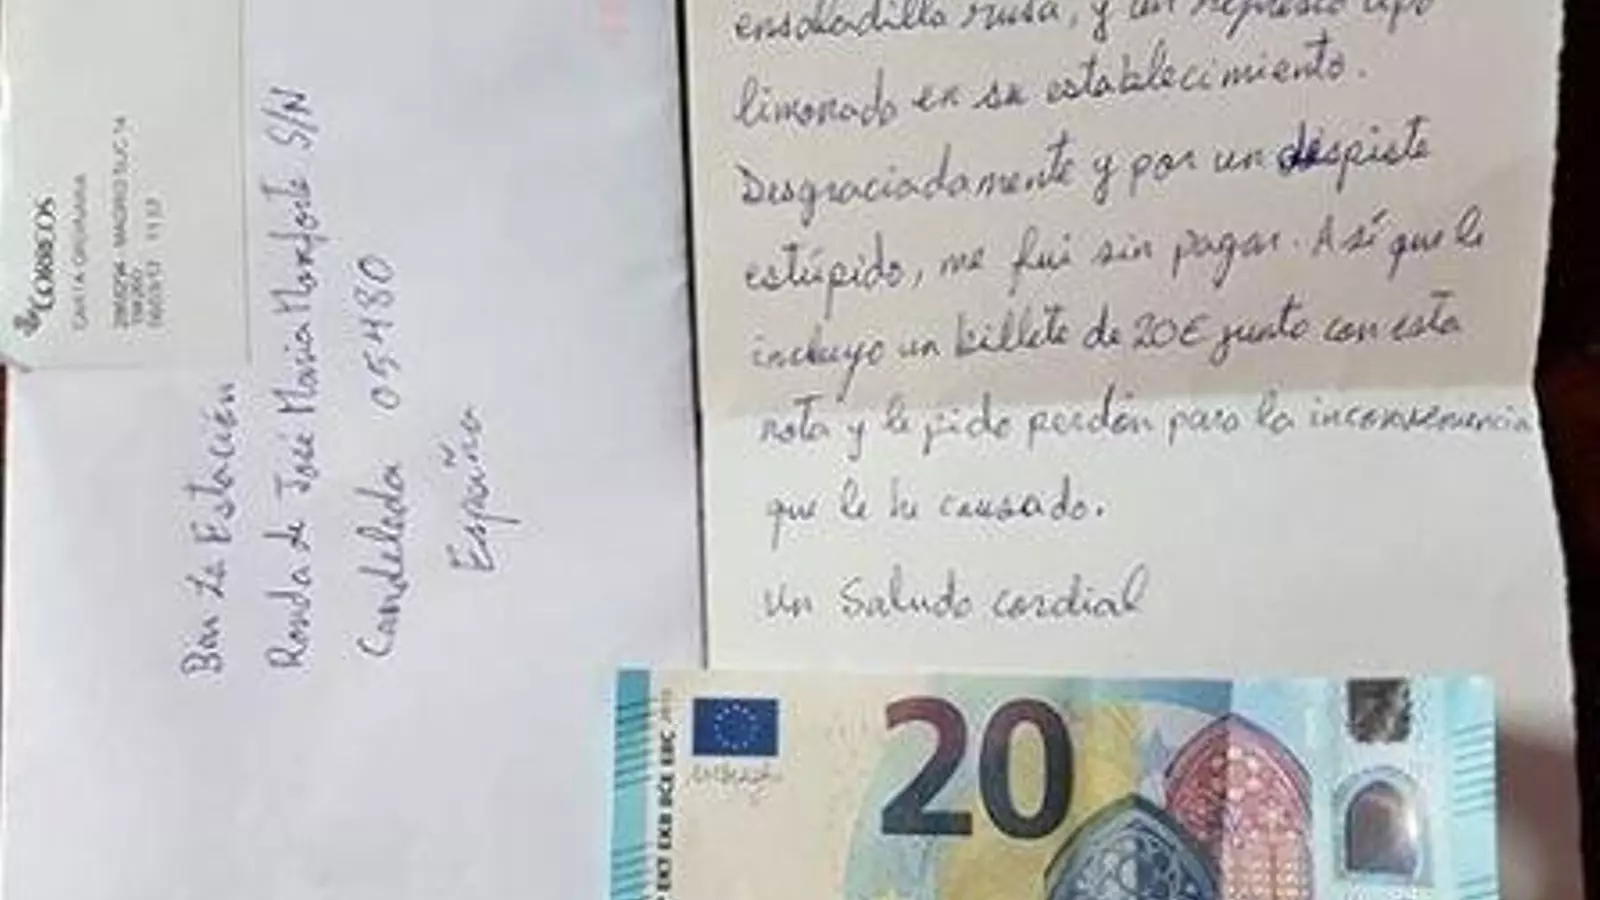 CORREOS
CARTA ORDINARIA
Bar La Estación
Ronda de José Maria Monforte S/N
Candeleda 05480
España
ensaladilla rusa, y un refresco tipo
limonada en su establecimiento.
Desgraciadamente y por un despiste
estúpido, me fui sin pagar. Así que le
incluyo un billete de 20€ junto con esta
nota y le pido perdón para la inconveniencia
que le he causado.
Un saludo cordial
20